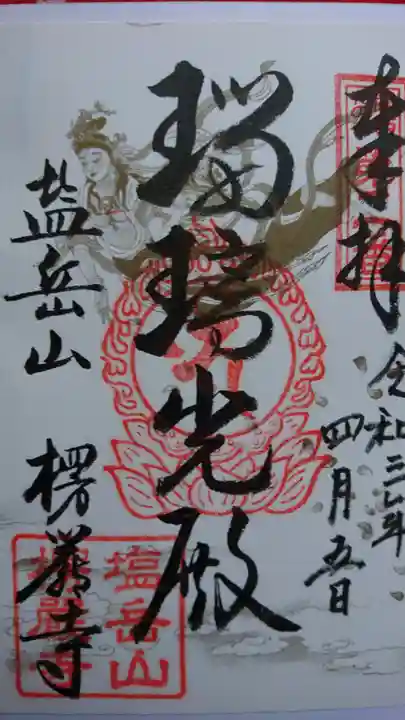 奉拝
令和三年
四月五日
瑠璃光殿
塩岳山
楞嚴寺
塩岳山
楞嚴寺